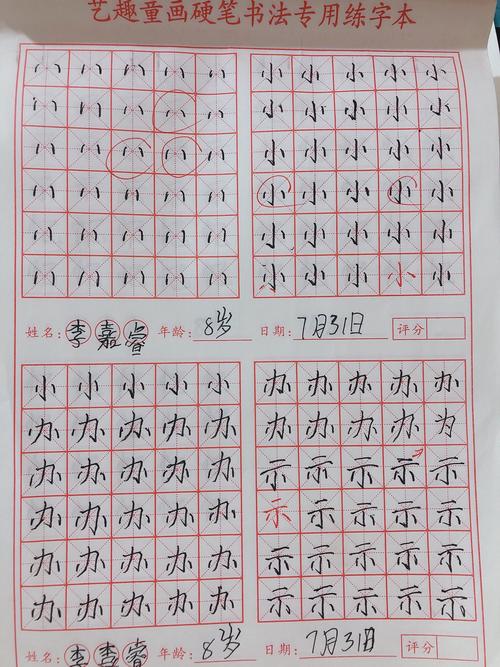 艺趣童画硬笔书法专用练字本
小 小 小 小 小
小 小 小 小 小
小 小 小 小 小
小 小 小 小 小
小 小 小 小 小
小 小 小 小 小
姓名: 李嘉睿 年龄: 8岁 日期: 7月31日 评分
小 小 小 小 小
办 办 办 办 办
办 办 办 办 办
办 办 办 办 办
办 办 办 办 办
办 办 办 办 办
办 办 办 办 办
办 办 办 办 为
示 示 示 示 示
示 示 示 示 示
示 示 示 示 示
示 示 示 示 示
姓名: 李嘉睿 年龄: 8岁 日期: 7月31日 评分